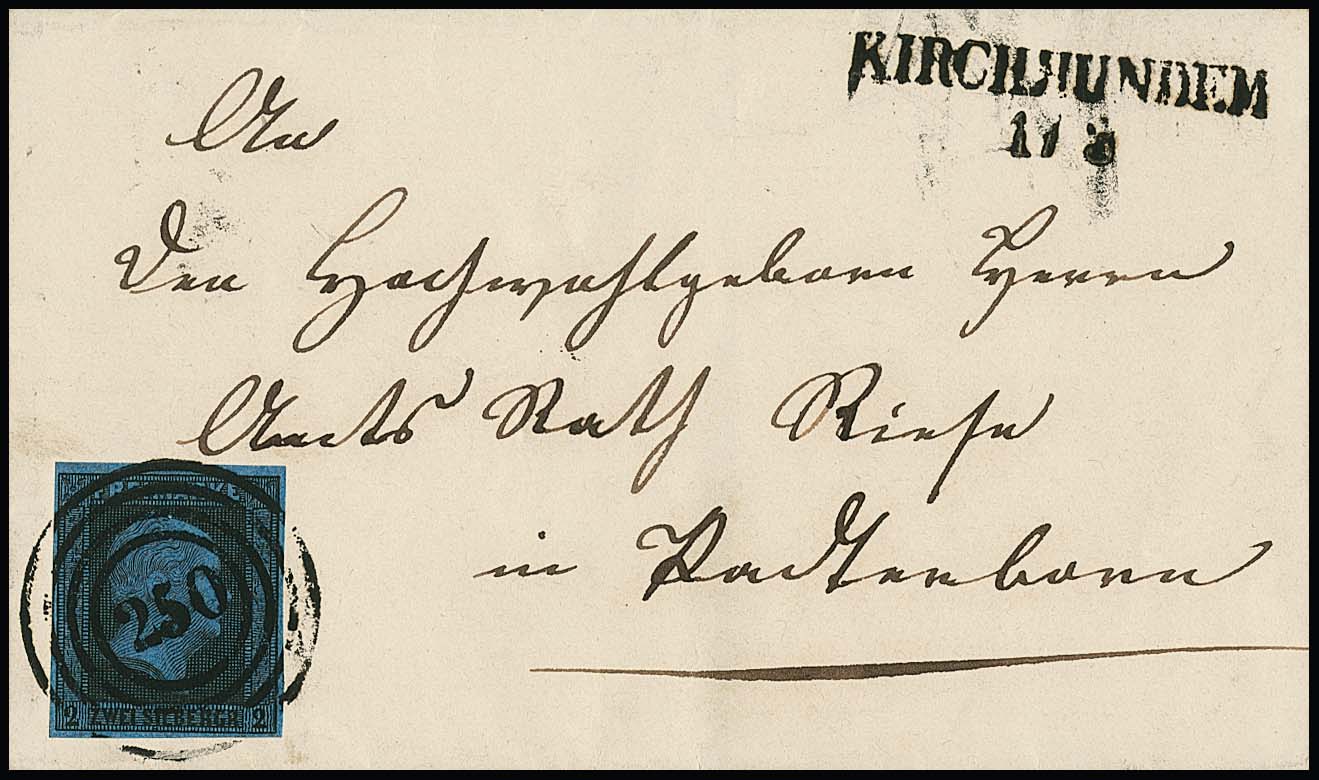 KIRCHHUNDEM
1/ 3
An
Den Hochwohlgeborn Herrn
Amts Rath Riese
in Paderborn
FREIMARKE
250
2 ZWEI SILBERGR. 2